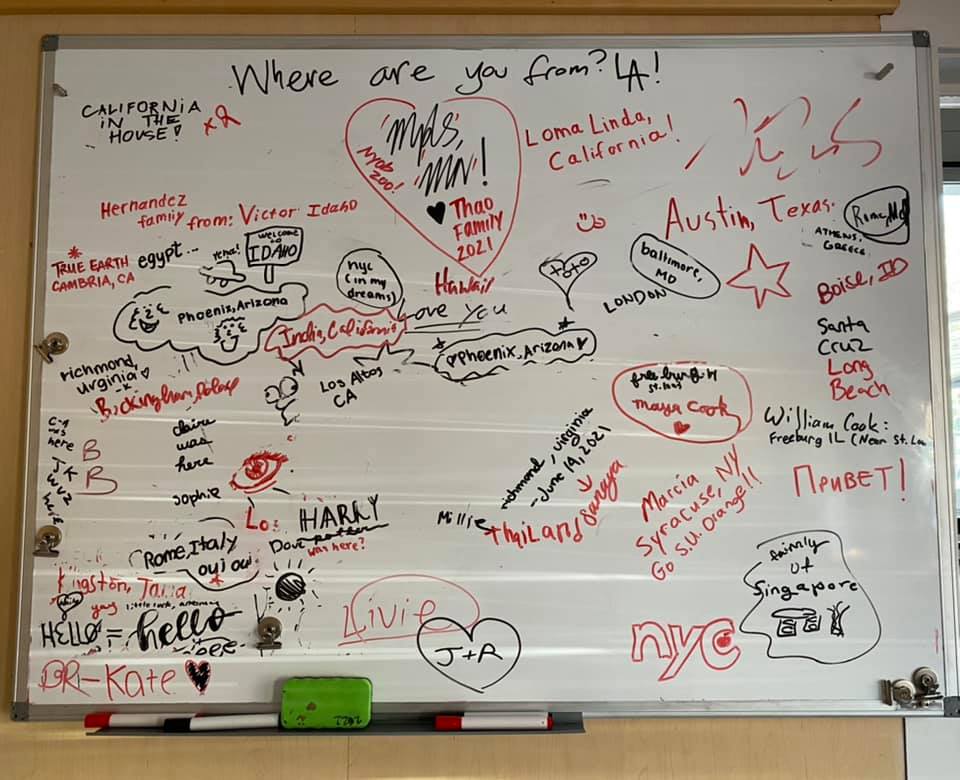 Where are you from? LA!
CALIFORNIA
IN THE
HOUSE!
x2
"Mpls,
MN!
Thao
Family
2021
Loma Linda,
California!
Hernandez
family from: Victor Idaho
Austin, Texas.
Rome,
ATHENS,
GREECE
TRUE EARTH
CAMBRIA, CA
egypt...
WELCOME
TO
IDAHO
nyc
(in my
dreams)
Hawaii
toto
baltimore,
MD
LONDON
Boise, ID
Phoenix, Arizona
India, California
Love You
Phoenix, Arizona
Santa
Cruz
Long
Beach
richmond,
virginia
Buckingham Palace
Los Altos
CA
freeburg
Maya Cook
William Cook:
Freeburg IL (Near St. Lou
was
here
B
B
JK
wuz
here
claire
was
here
sophie
richmond, virginia
- June 14, 2021
sanaya
Marcia
Syracuse, NY
Go S.U. Orange!!
ПРИВЕТ!
Lo
HARRY
Dave
was here?
Millie
Thailand
Rome, Italy
oui oui
Kingston,
yay
little rock, arkansas
HELLO = hello
Livie
J+R
nyc
family
of
Singapore
BR-Kate
2022